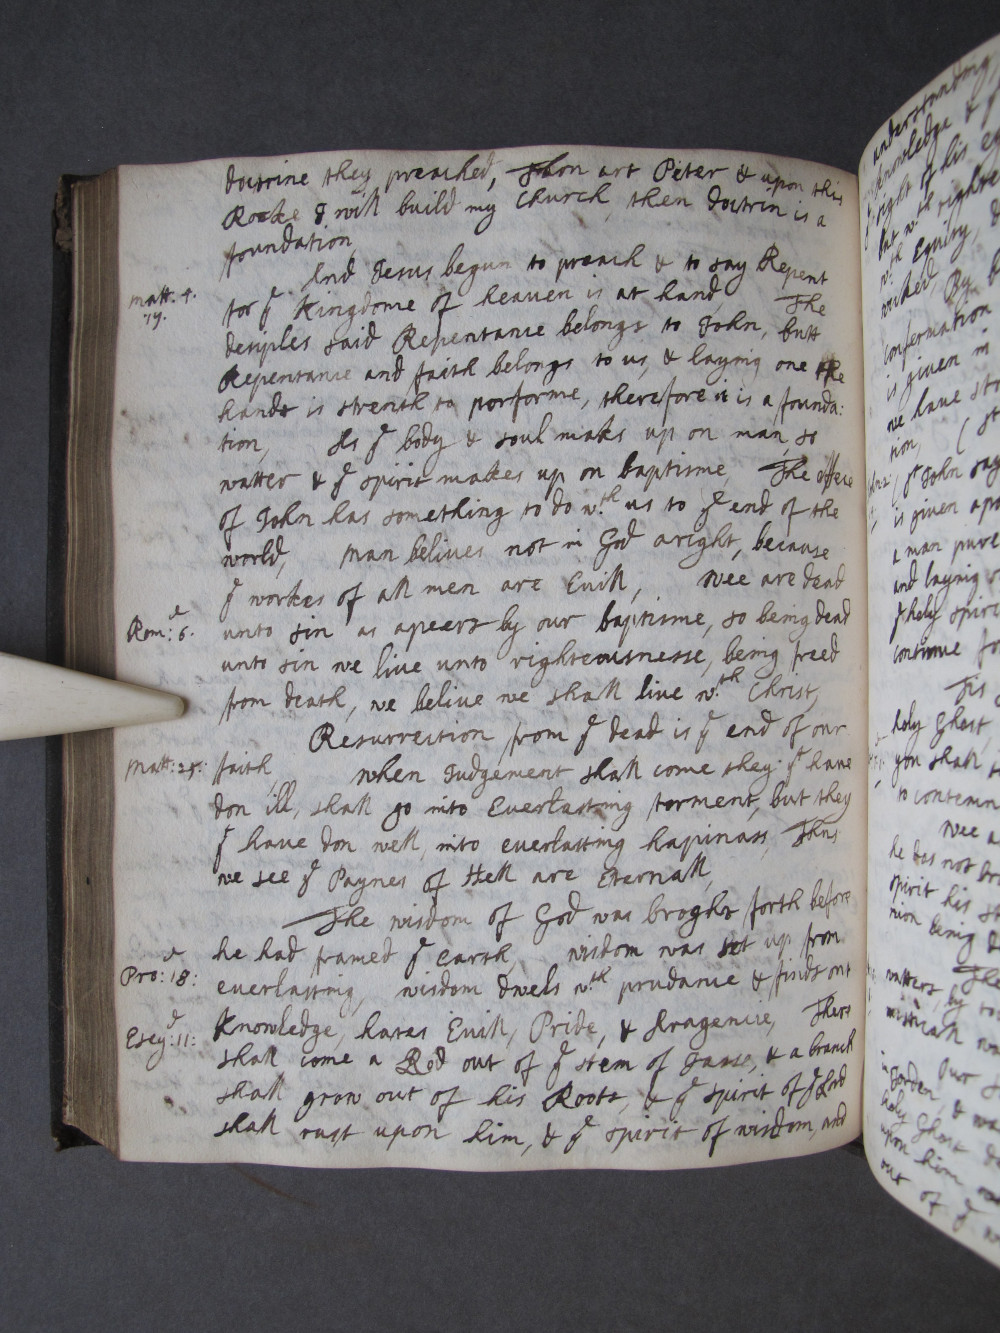 doctrine they preached, Thou art Peter & upon this
Rocke I will build my Church, then doctrin is a
foundation,
And Jesus begun to preach & to say Repent
Matt: 4.
17.
for ye Kingdome of heaven is at hand, The
desiples said Repentance belongs to John, butt
Repentance and faith belongs to us, & laying one the
hands is strenth to performe, therefore it is a founda:
tion, As ye body & soul maks up on man, so
watter & ye spirit makes up on baptisme, The office
of John has something to do wth us to ye end of the
world, Man belives not in God aright, because
ye workes of all men are Evill, Wee are dead
Rom: 6.
unto sin as apeers by our baptisme, so being dead
unto sin we live unto righteousnesse, being freed
from death, we belive we shall live wth Christ,
Resurrection from ye dead is ye end of our
Matt: 25:
faith, when Judgement shall come they yt have
don ill, shall go into Everlasting torment, but they
yt have don well, into everlasting hapinass, Thus
we see ye Paynes of Hell are Eternall,
The wisdom of God was broght forth before
he had framed ye earth, wisdom was set up from
Pro: 18:
everlasting, wisdom dwels wth prudance & finds out
Knowledge, hates Evill, Pride, & Aragencie, There
Esey: 11:
shall come a Rod out of ye stem of Jasse, & a branch
shall grow out of his Roots, & ye spirit of ye Lord
shall rast upon him, & ye spirit of wisdom, and
understanding,
knowledge & ye
sight of his
but wth
wth Equity,
wicked, By
confermation
is given in
we have
tion,
yt John say
is given
a man
and laying
ye holy spirit
continue
holy Ghost,
you shall
to contemn
Wee
he has not
spirit his
nion being
watters, by
Our
in Jorden, &
holy Ghost
upon him
out of ye